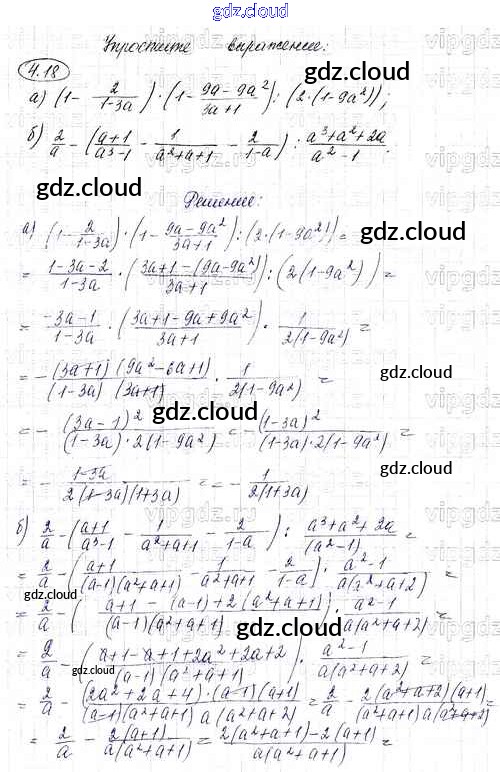 gdz.cloud
Упростите выражение:
4.18
а) (1 - 2/(1-3a)) · (1 - (9a-9a²)/(3a+1)) : (2·(1-9a²));
б) 2/a - ((a+1)/(a³-1) - 1/(a²+a+1) - 2/(1-a)) : (a³+a²+2a)/(a²-1).
Решение:
а) (1 - 2/(1-3a)) · (1 - (9a-9a²)/(3a+1)) : (2·(1-9a²)) =
= (1-3a-2)/(1-3a) · ((3a+1-(9a-9a²))/(3a+1)) : (2(1-9a²)) =
= (-3a-1)/(1-3a) · ((3a+1-9a+9a²)/(3a+1)) · 1/(2(1-9a²)) =
= - ((3a+1)(9a²-6a+1))/((1-3a)(3a+1)) · 1/(2(1-9a²)) =
= - (3a-1)²/((1-3a)·2(1-9a²)) = - (1-3a)²/((1-3a)·2(1-9a²)) =
= - (1-3a)/(2(1-3a)(1+3a)) = - 1/(2(1+3a))
б) 2/a - ((a+1)/(a³-1) - 1/(a²+a+1) - 2/(1-a)) : (a³+a²+2a)/(a²-1) =
= 2/a - ((a+1)/((a-1)(a²+a+1)) - 1/(a²+a+1) - 2/(1-a)) · (a²-1)/(a(a²+a+2)) =
= 2/a - ((a+1-(a-1)+2(a²+a+1))/((a-1)(a²+a+1))) · (a²-1)/(a(a²+a+2)) =
= 2/a - ((a+1-a+1+2a²+2a+2)/((a-1)(a²+a+1))) · (a²-1)/(a(a²+a+2)) =
= 2/a - ((2a²+2a+4)·(a-1)(a+1))/((a-1)(a²+a+1)a(a²+a+2)) = 2/a - (2(a²+a+2)(a+1))/((a²+a+1)a(a²+a+2)) =
= 2/a - (2(a+1))/(a(a²+a+1)) = (2(a²+a+1)-2(a+1))/(a(a²+a+1)) =